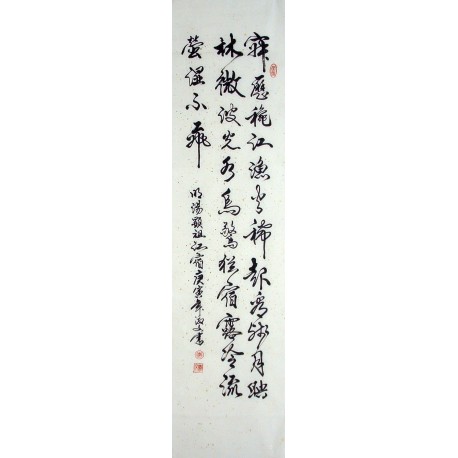 寂歷穐江漁火稀起看殘月映
林微波光水鳥驚猶宿露冷流
螢湿不飛
明湯顯祖江宿庚寅年書